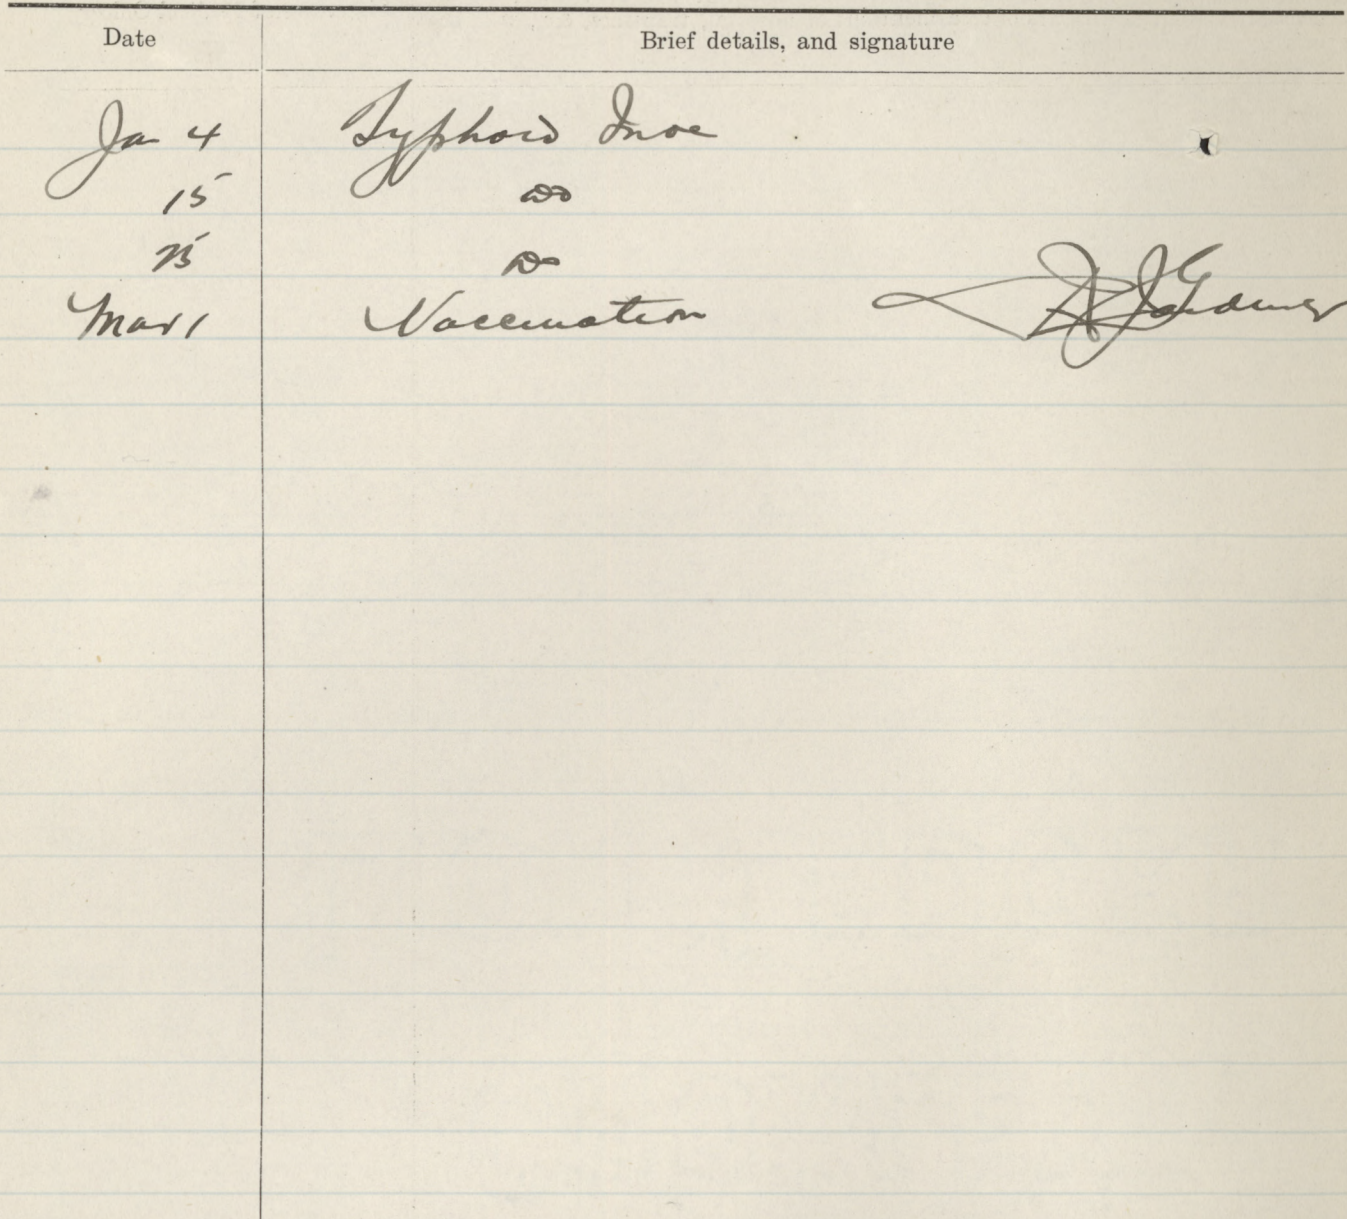 Date Brief details, and signature
Jan 4 Typhoid Inoc
15 Do
25 Do
Mar 1 Vaccination